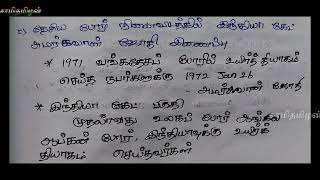 சாமிதமிழன்
சாமிதமிழன்
2) தேசிய போர் நினைவிடத்தில் இந்தியா கேட்
அமர்ஜவான் ஜோதி இணைப்பு
* 1971 வங்கதேசப் போரில் உயிர்த் தியாகம்
செய்த நபர்களுக்கு 1972 Jan 26
- அமர்ஜவான் ஜோதி
* இந்தியா கேட் பகுதி
முதலாவது உலகப் போர் ஆங்கில
ஆப்கன் போர், இந்தியாவுக்கு உயிர்த்
தியாகம் செய்தவர்கள்